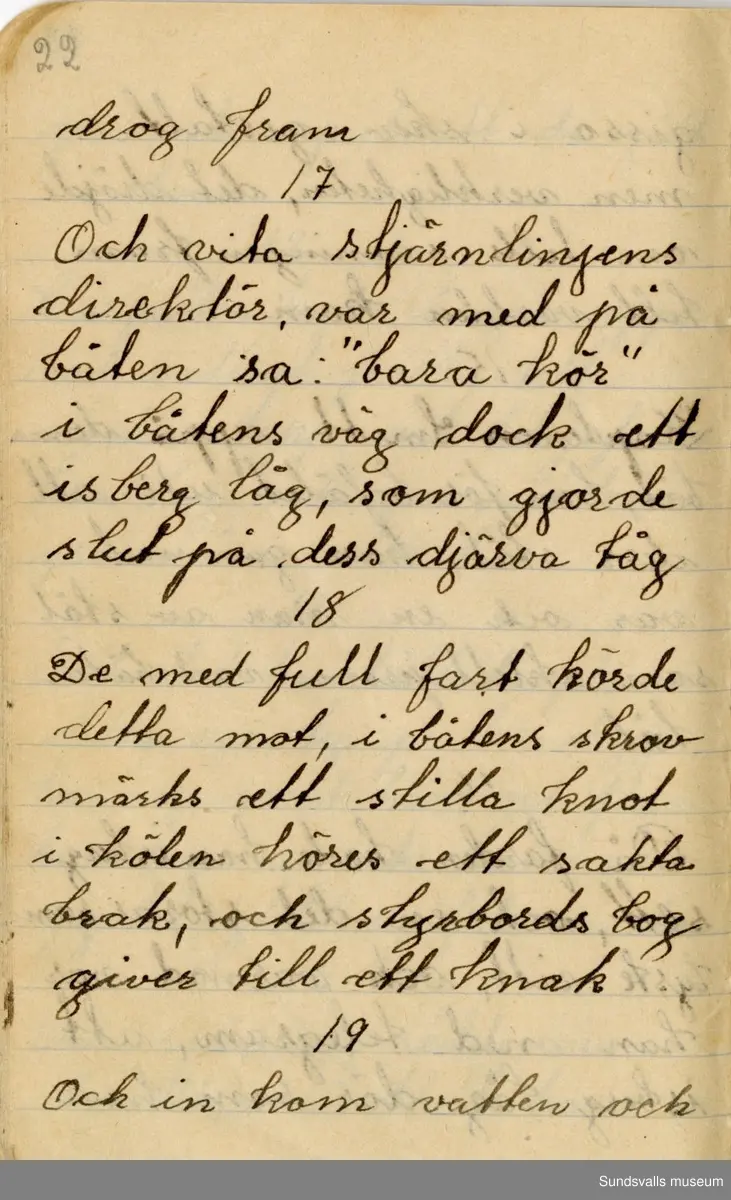 22
drog fram
17
Och vita stjärnlinjens
direktör, var med på
båten sa: "bara kör"
i båtens väg dock ett
isberg låg, som gjorde
slut på dess djärva tåg
18
De med full fart körde
detta mot, i båtens skrov
märks ett stilla knot
i kölen höres ett sakta
brak, och styrbords bog
giver till ett knak
19
Och in kom vatten och
Sundsvalls museum